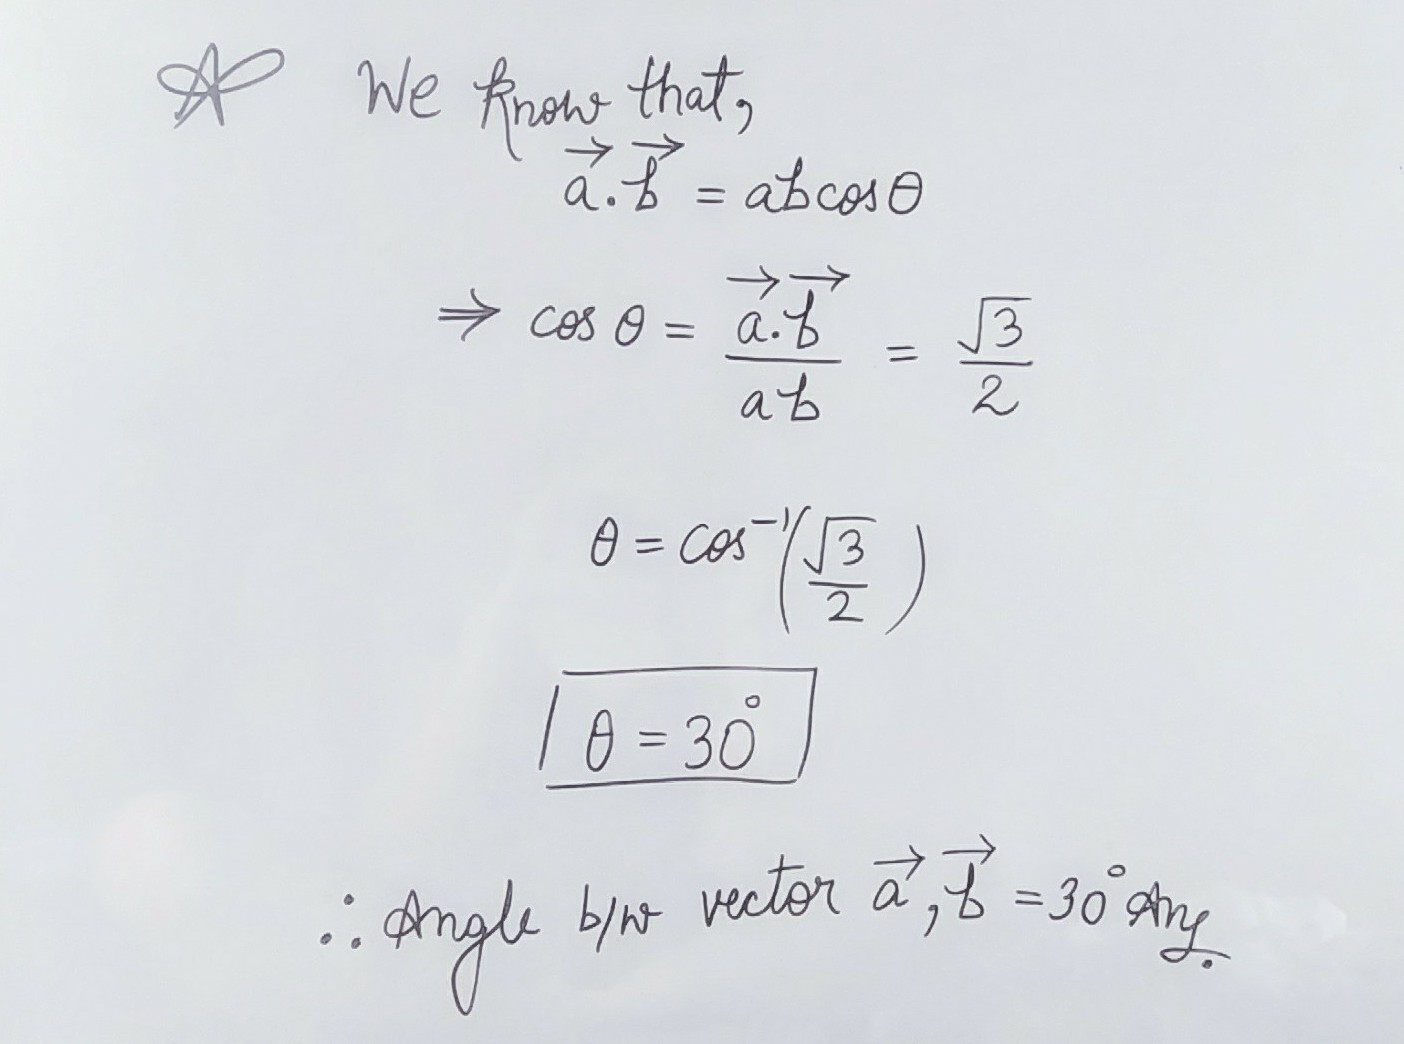 We know that,
a⃗.b⃗ = ab cos θ
⇒ cos θ = a⃗.b⃗ / ab = √3 / 2
θ = cos⁻¹(√3 / 2)
θ = 30°
∴ Angle b/w vector a⃗, b⃗ = 30° Ans.